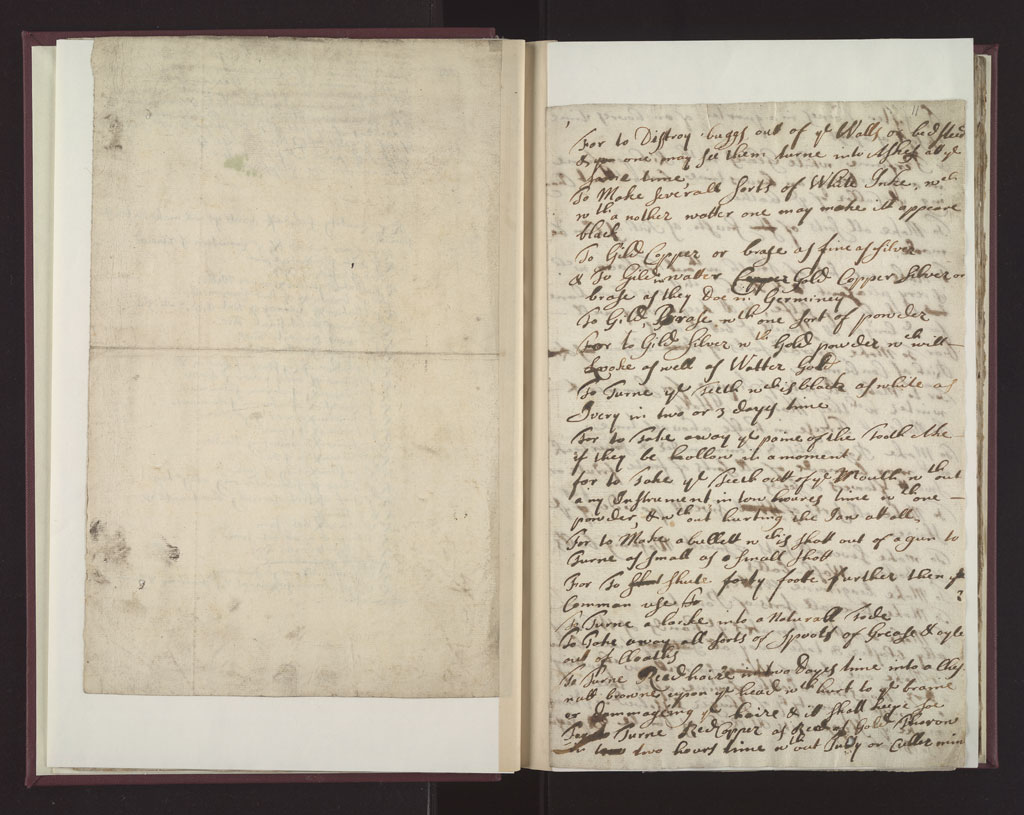 11
For to Distroy buggs out of ye Walls or bed sted
& one may see them turne into Ashes at ye
same time
To Make severall sorts of White Inke, wch
wth a nother watter one may make itt appeare
black
To Gild Copper or brase as fine as silver
& To Gild in watter Gold Copper Silver or
brase as they Doe in Germiney
To Gild Brase wth one sort of powder
For to Gild Silver wth Gold powder wch will
Looke as well as Watter Gold
To Turne ye Teeth wch is black as white as
Ivery in two or 3 dayes time
For to Take away ye paine of the Tooth Ake
if they be hollow in a moment
for to Take ye Teeth out of ye Mouth wth out
any Instrument in tow houres time wth one
powder, & wth out hurting the Jaw at all.
For to Make a bullett wch is shott out of a gun to
Turne as small as small shott
For To shute forty foote further then ye
Common use
To Turne a Corke into a Naturall Tode
To Take away all sorts of Spoots of Grease & oyle
out of Cloaths
To Turne Reed haire in two Dayes time into a Ches
nutt browne upon ye head wth hurt to ye braine
or dammageing ye haire & itt shall keepe soe
To Turne Red Copper as Gold
in two hours time wth out or